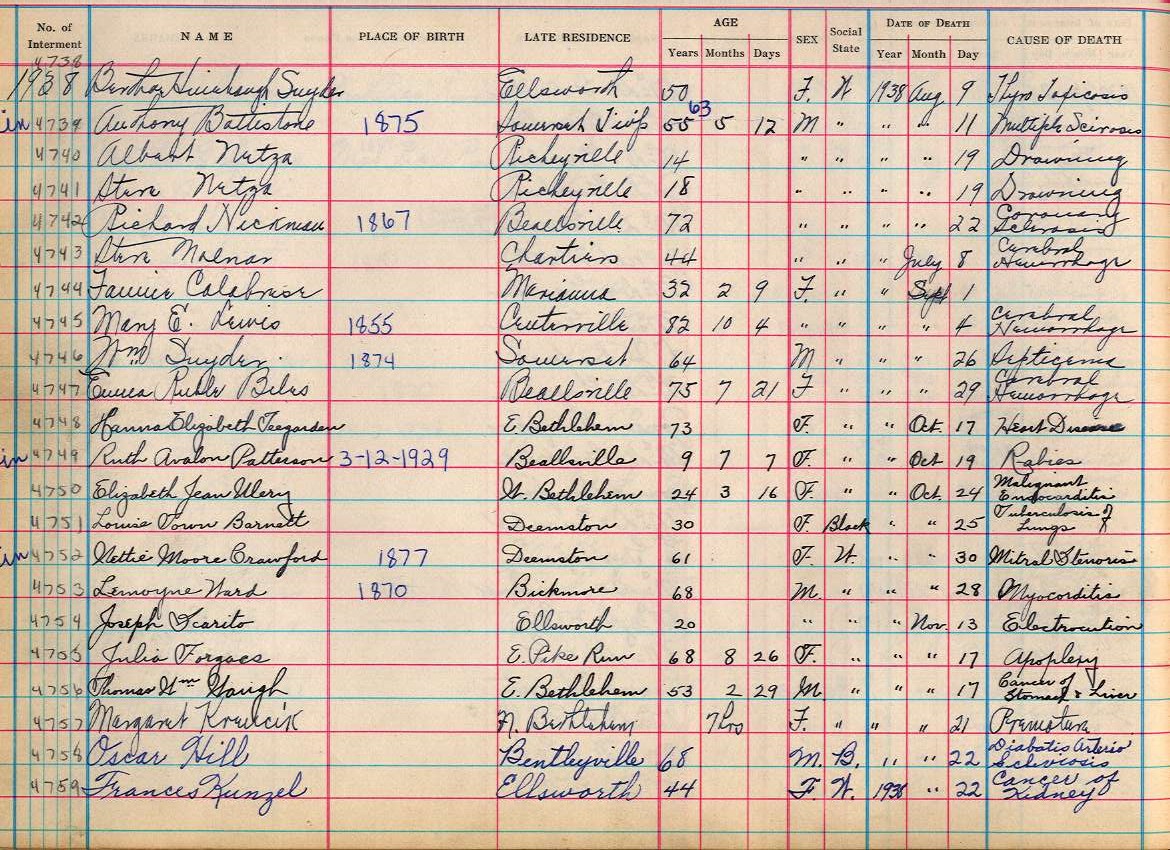 No. of Interment NAME PLACE OF BIRTH LATE RESIDENCE AGE Years Months Days SEX Social State DATE OF DEATH Year Month Day CAUSE OF DEATH
4738
1938 Bertha Snyder Ellsworth 50 F. W 1938 Aug 9 Thyro Toxicosis
in 4739 Anthony Battistone 1875 Somerset Twp 55 63 5 12 M " " " 11 Multiple Scirosis
4740 Albert Netza Richeyville 14 " " " " 19 Drowning
4741 Steve Netza Richeyville 18 " " " " 19 Drowning
4742 Richard Nickman 1867 Beallsville 72 " " " " 22 Coronary Sclerosis
4743 Steve Molnar Chartiers 44 " " " July 8 Cerebral Hemorrhage
4744 Fannie Calabrese Marianna 32 2 9 F. " " Sept 1
4745 Mary E. Lewis 1855 Centerville 82 10 4 " " " " 4 Cerebral Hemorrhage
4746 Wm Snyder. 1874 Somerset 64 M " " " 26 Septicema
4747 Emma Ruble Biles Beallsville 75 7 21 F " " " 29 Cerebral Hemorrhage
4748 Hanna Elizabeth Teegarden E. Bethlehem 73 F. " " Oct. 17 Heart Disease
in 4749 Ruth Avalon Patterson 3-12-1929 Beallsville 9 7 7 F. " " Oct 19 Rabies
4750 Elizabeth Jean Ulery W. Bethlehem 24 3 16 F. " " Oct. 24 Malignant Endocarditis
4751 Louise Town Barnett Deemston 30 F. Black " " 25 Tuberculosis of Lungs
in 4752 Nettie Moore Crawford 1877 Deemston 61 F. W. " " 30 Mitral Stenosis
4753 Lemoyne Ward 1870 Bickmore 68 M. " " " 28 Myocorditis
4754 Joseph Scarito Ellsworth 20 " " " Nov. 13 Electrocution
4755 Julia Forgacs E. Pike Run 68 8 26 F. " " " 17 Apoplexy
4756 Thomas Wm Gough E. Bethlehem 53 2 29 M. " " " 17 Cancer of Stomach & Liver
4757 Margaret Krencik N. Bethlehem 7 hrs F. " " " 21 Premature
4758 Oscar Hill Bentleyville 68 M. B. " " 22 Diabatis Arterio
4759 Frances Kunzel Ellsworth 44 F W. 1938 " 22 Cancer of Kidney